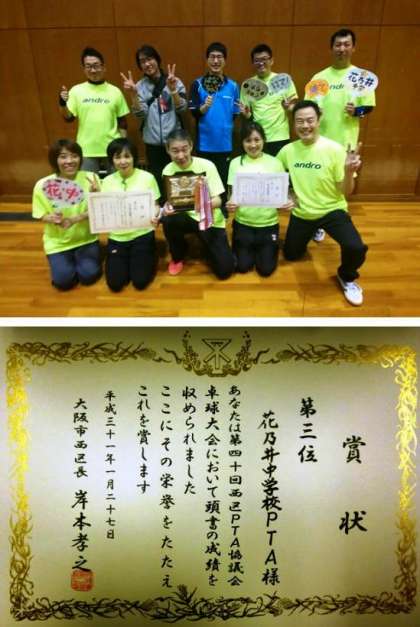 andro
andro
andro
花乃井
andro
花乃井
賞状
第三位
花乃井中学校PTA様
あなたは第四十回西区PTA協議会
卓球大会において頭書の成績を
収められました
ここにその栄誉をたたえ
これを賞します
平成三十一年一月二十七日
大阪市西区長 岸本孝之